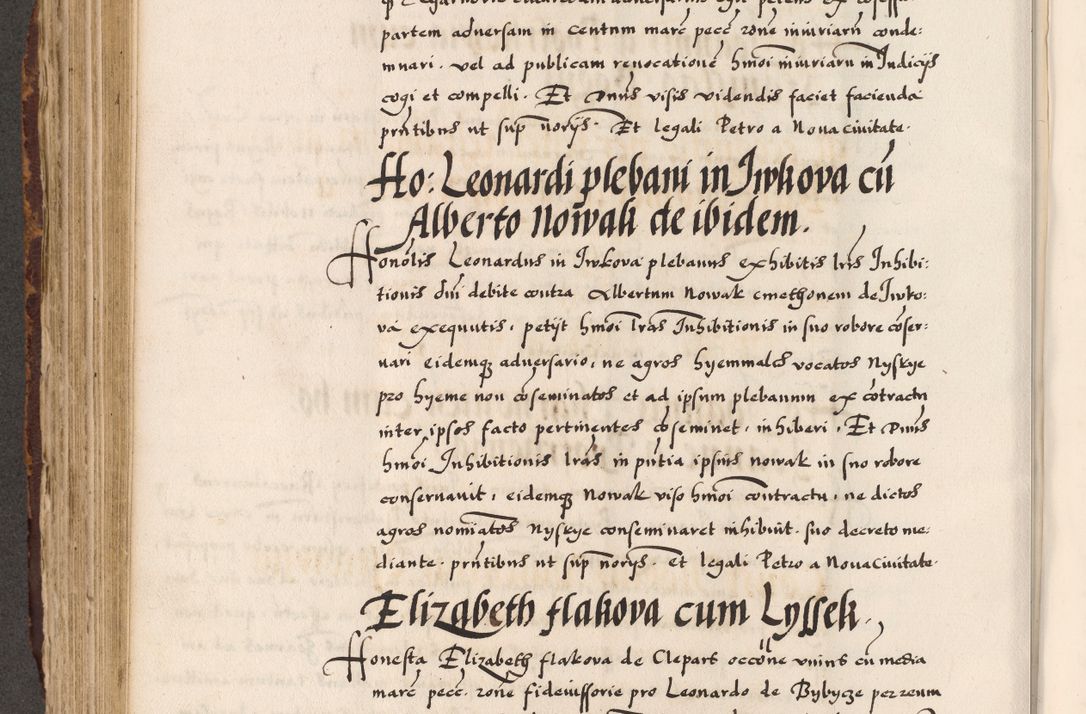 partem adversam in centum marc̃ pecc̃ rõne iniuriarũ conde:
mnari. vel ad publicam reuocationẽ hm̃oi iniuriarũ in Judicijs
cogi et compelli. Et Dnũs visis videndis faciet faciendã
prñtibus ut sup̃ norijs. Et legali Petro a Nova civitate.
Ho: Leonardi plebani in Jwkova cũ
Alberto Nowak de ibidem.
Honõlis Leonardus in Jwkova plebanus exhibitis lrĩs Inhibi:
tionis dnĩ debite contra Albertum Nowak cmethonem de Jwko:
va exequutis, petijt hm̃oi lrãs Inhibitionis in suo robore cõser:
vari eidemq̃ adversario, ne agros hyemmales vocatos Nyskye
pro hyeme non cõseminatos et ad ipsum plebanum ex cõtractu
inter ipsos facto pertinentes cõseminet, inhiberi, Et Dnũs
hm̃oi Inhibitionis lrãs in pñtia ipsius nowak in suo robore
conservavit, eidemq̃ Nowak viso hm̃oi contractu, ne dictos
agros nomiãtos Nyskye conseminaret inhibuit. suo decreto me:
diante. prñtibus ut sup̃ norijs. et legali Petro a Nova Civitate.
Elizabeth flakova cum Lyssek.
Honesta Elizabeth flakova de Clepars occõne unius cũ media
marc̃ pecc̃. rõne fideiussorie pro Leonardo de Bybycze per zenum